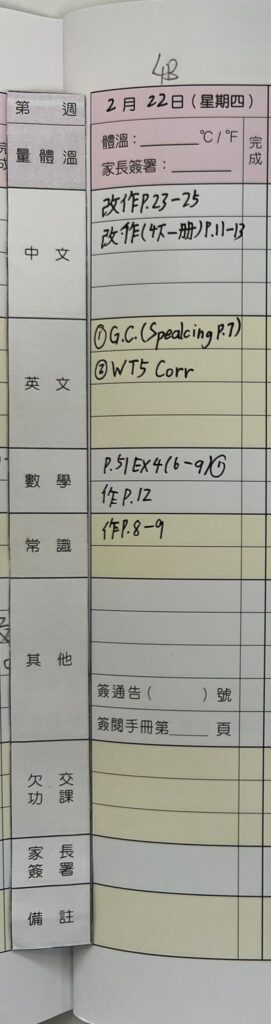 4B
第 週
2月22日(星期四)
量體溫
體溫：______°C/°F
家長簽署：______
完成
中文
改作P.23-25
改作(4下一册)P.11-13
英文
①G.C.(Speaking P.7)
②WT5 Corr
數學
P.51EX4(6-9)①
作P.12
常識
作P.8-9
其他
簽通告( )號
簽閱手冊第____頁
欠交
功課
家長
簽署
備註